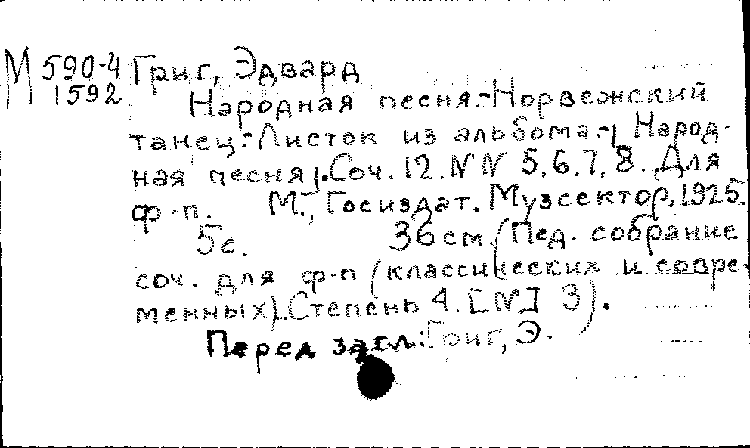 М 590-4 Григ, Эдвард
1592
Народная песня.-Норвежский
танец.-Листок из альбома.-| Народ-
ная песня|.Соч. 12. NN 5,6,7,8. Для
ф-п. М., Госиздат. Музсектор, 1925.
5с. 36см. (Пед. собрание
соч. для ф-п (классических и совре-
менных). Степень 4. [N] 3).
Перед загл.: Григ, Э.